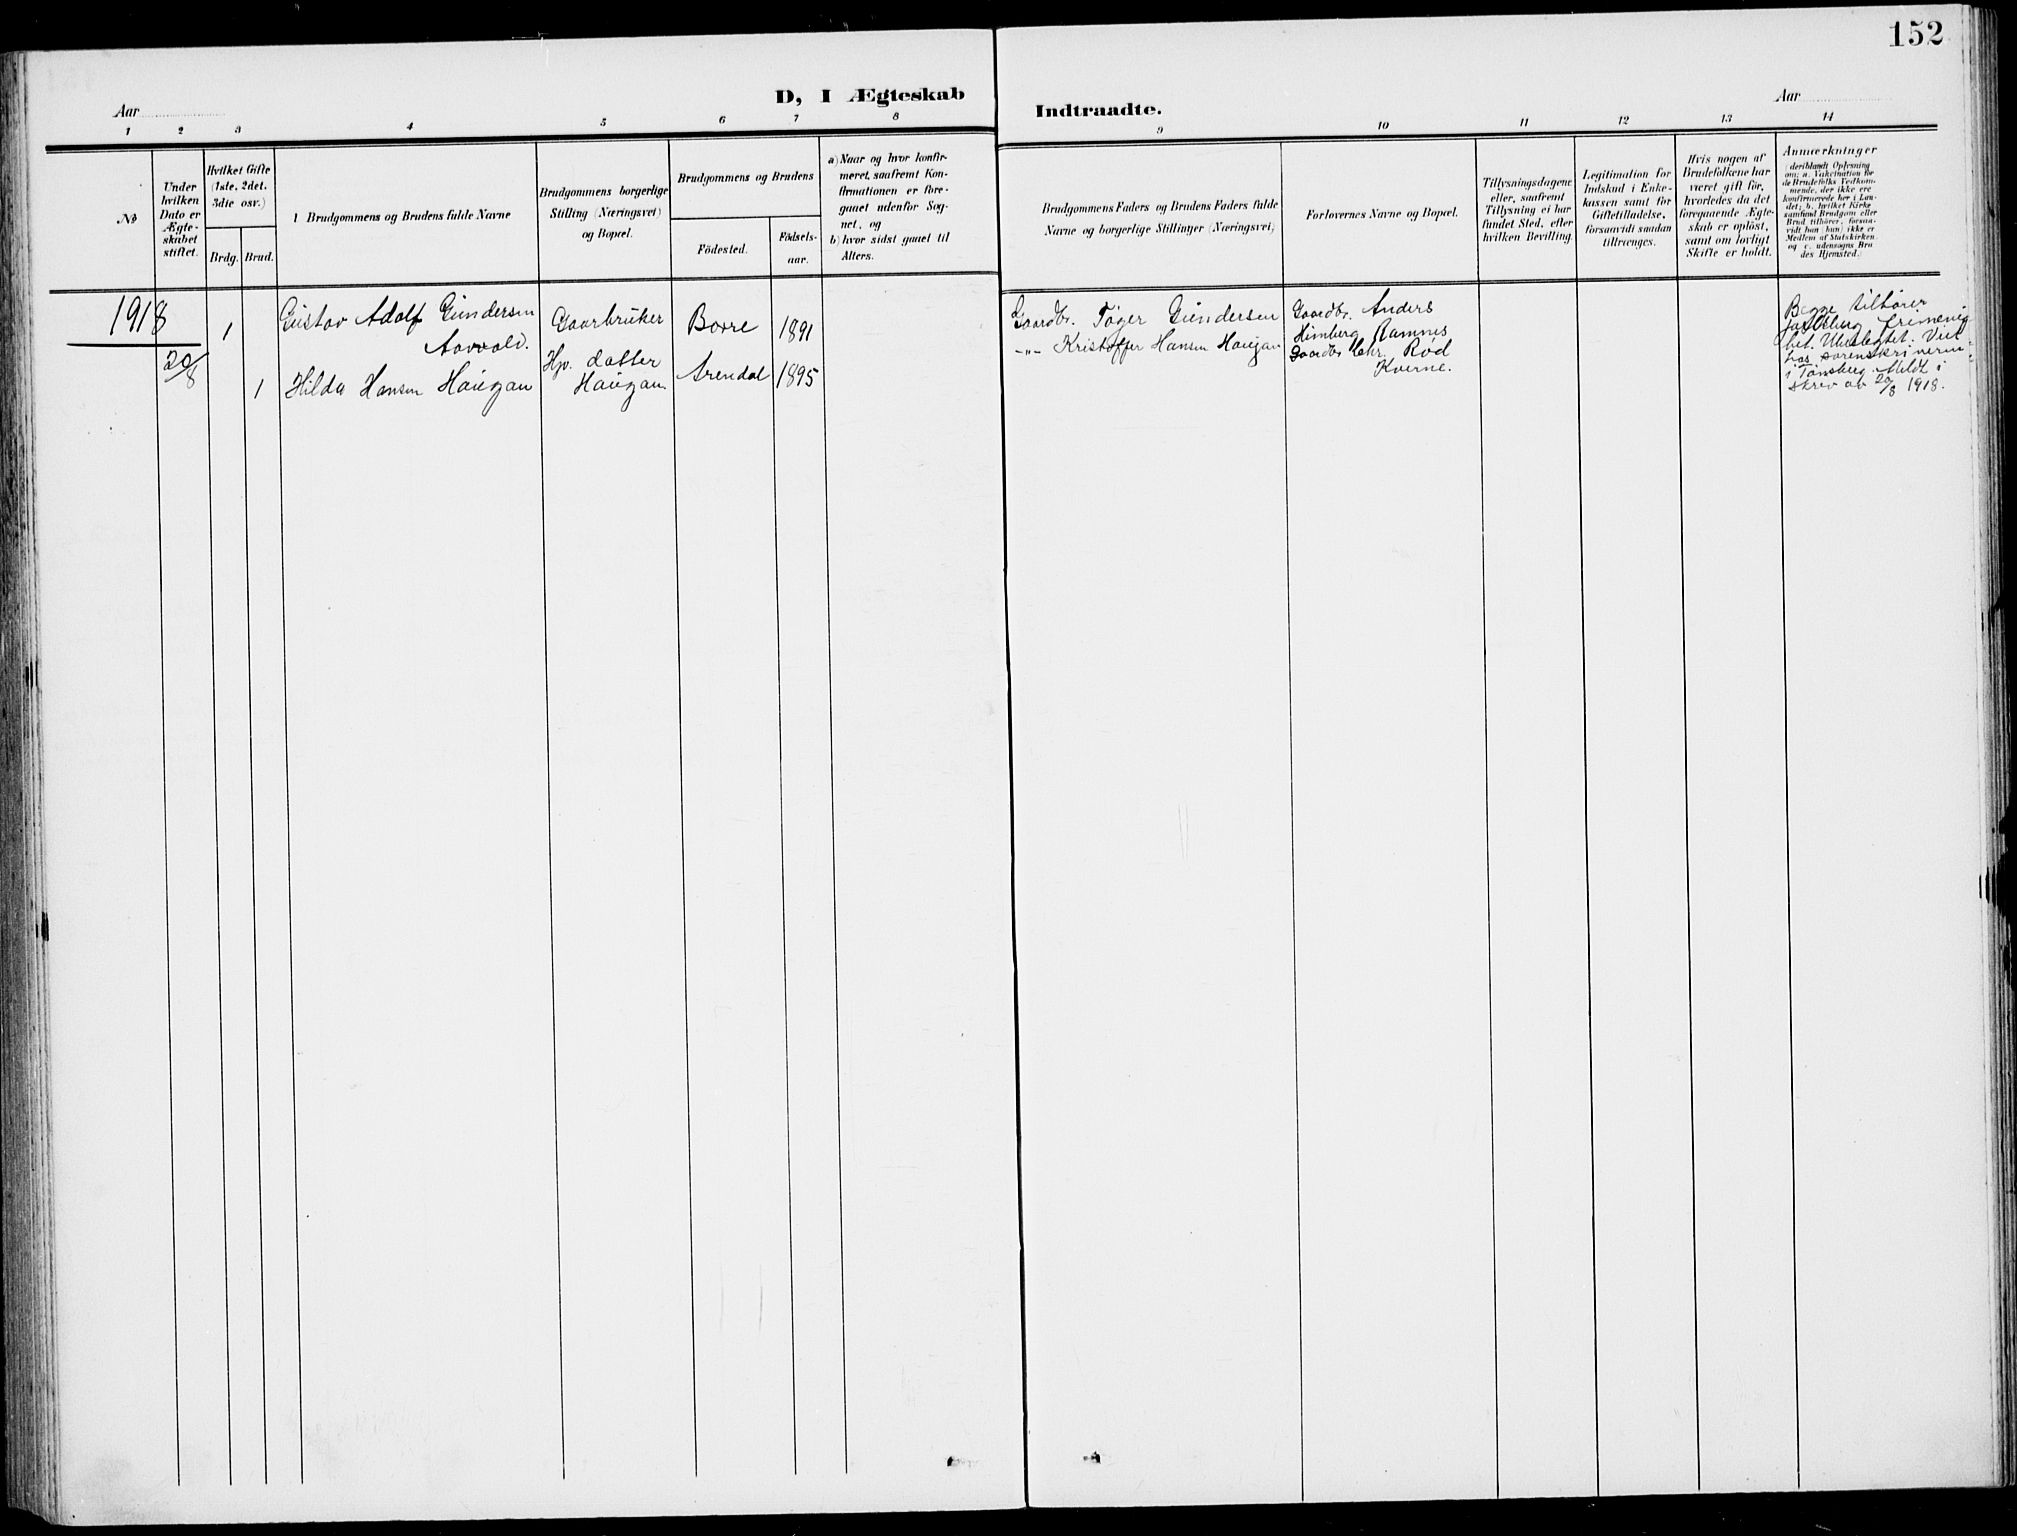 152
D, I Ægteskab
Indtraadte.
Aar
Aar
1 2 3 4 5 6 7 8
9 10 11 12 13 14
No
Under
hvilken
Dato er
Ægte-
skabet
stiftet.
Hvilket Gifte
(1ste, 2det,
3die osv.)
Brdg.
Brud.
1 Brudgommens og Brudens fulde Navne
Brudgommens borgerlige
Stilling (Næringsvei)
og Bopæl.
Brudgommens og Brudens
Födested.
Födsels-
aar.
a) Naar og hvor konfir-
meret, saafremt Kon-
firmationen er fore-
gaaet udenfor Sog-
net, og
b) hvor sidst gaaet til
Alters.
Brudgommens Faders og Brudens Faders fulde
Navne og borgerlige Stillinger (Næringsvei)
Forlovernes Navne og Bopæl.
Tillysningsdagene
eller, saafremt
Tillysning ei har
fundet Sted, efter
hvilken Bevilling.
Legitimation for
Indskud i Enke-
kassen samt for
Giftetilladelse,
forsaavidt saadan
tiltrænges.
Hvis nogen af
Brudefolkene har
været gift för,
hvorledes da det
foregaaende Ægte-
skab er oplöst,
samt om lovligt
Skifte er holdt.
Anmærkninger
(deriblandt Oplysning
om: a. Vakcination for
de Brudefolks Vedkom-
mende, der ikke ere
konfirmerede her i Lan-
det; b. hvilket Kirke
samfund Brudgom eller
Brud tilhörer, forsaa-
vidt han (hun) ikke er
Medlem af Statskirken,
og c. udensogns Bru
des Hjemsted.)
1918
20/8
1
Gustav Adolf Gundersen
Aavold.
Gaarbruker
Borre
1891
1
Hilda Hansen Haugan
Hp. datter
Haugan
Arendal
1895
Gaardbr. Töger Gundersen
-"- Kristoffer Hansen Haugan
Gaardbr. Anders
Himberg Ramnes
Gaardbr Chr. Rød
Kverne.
Begge tilhører
Jarlsberg frimenig
het. Viet
hos sorenskriveren
i Tønsberg. Meldt i
skriv av 20/8 1918.